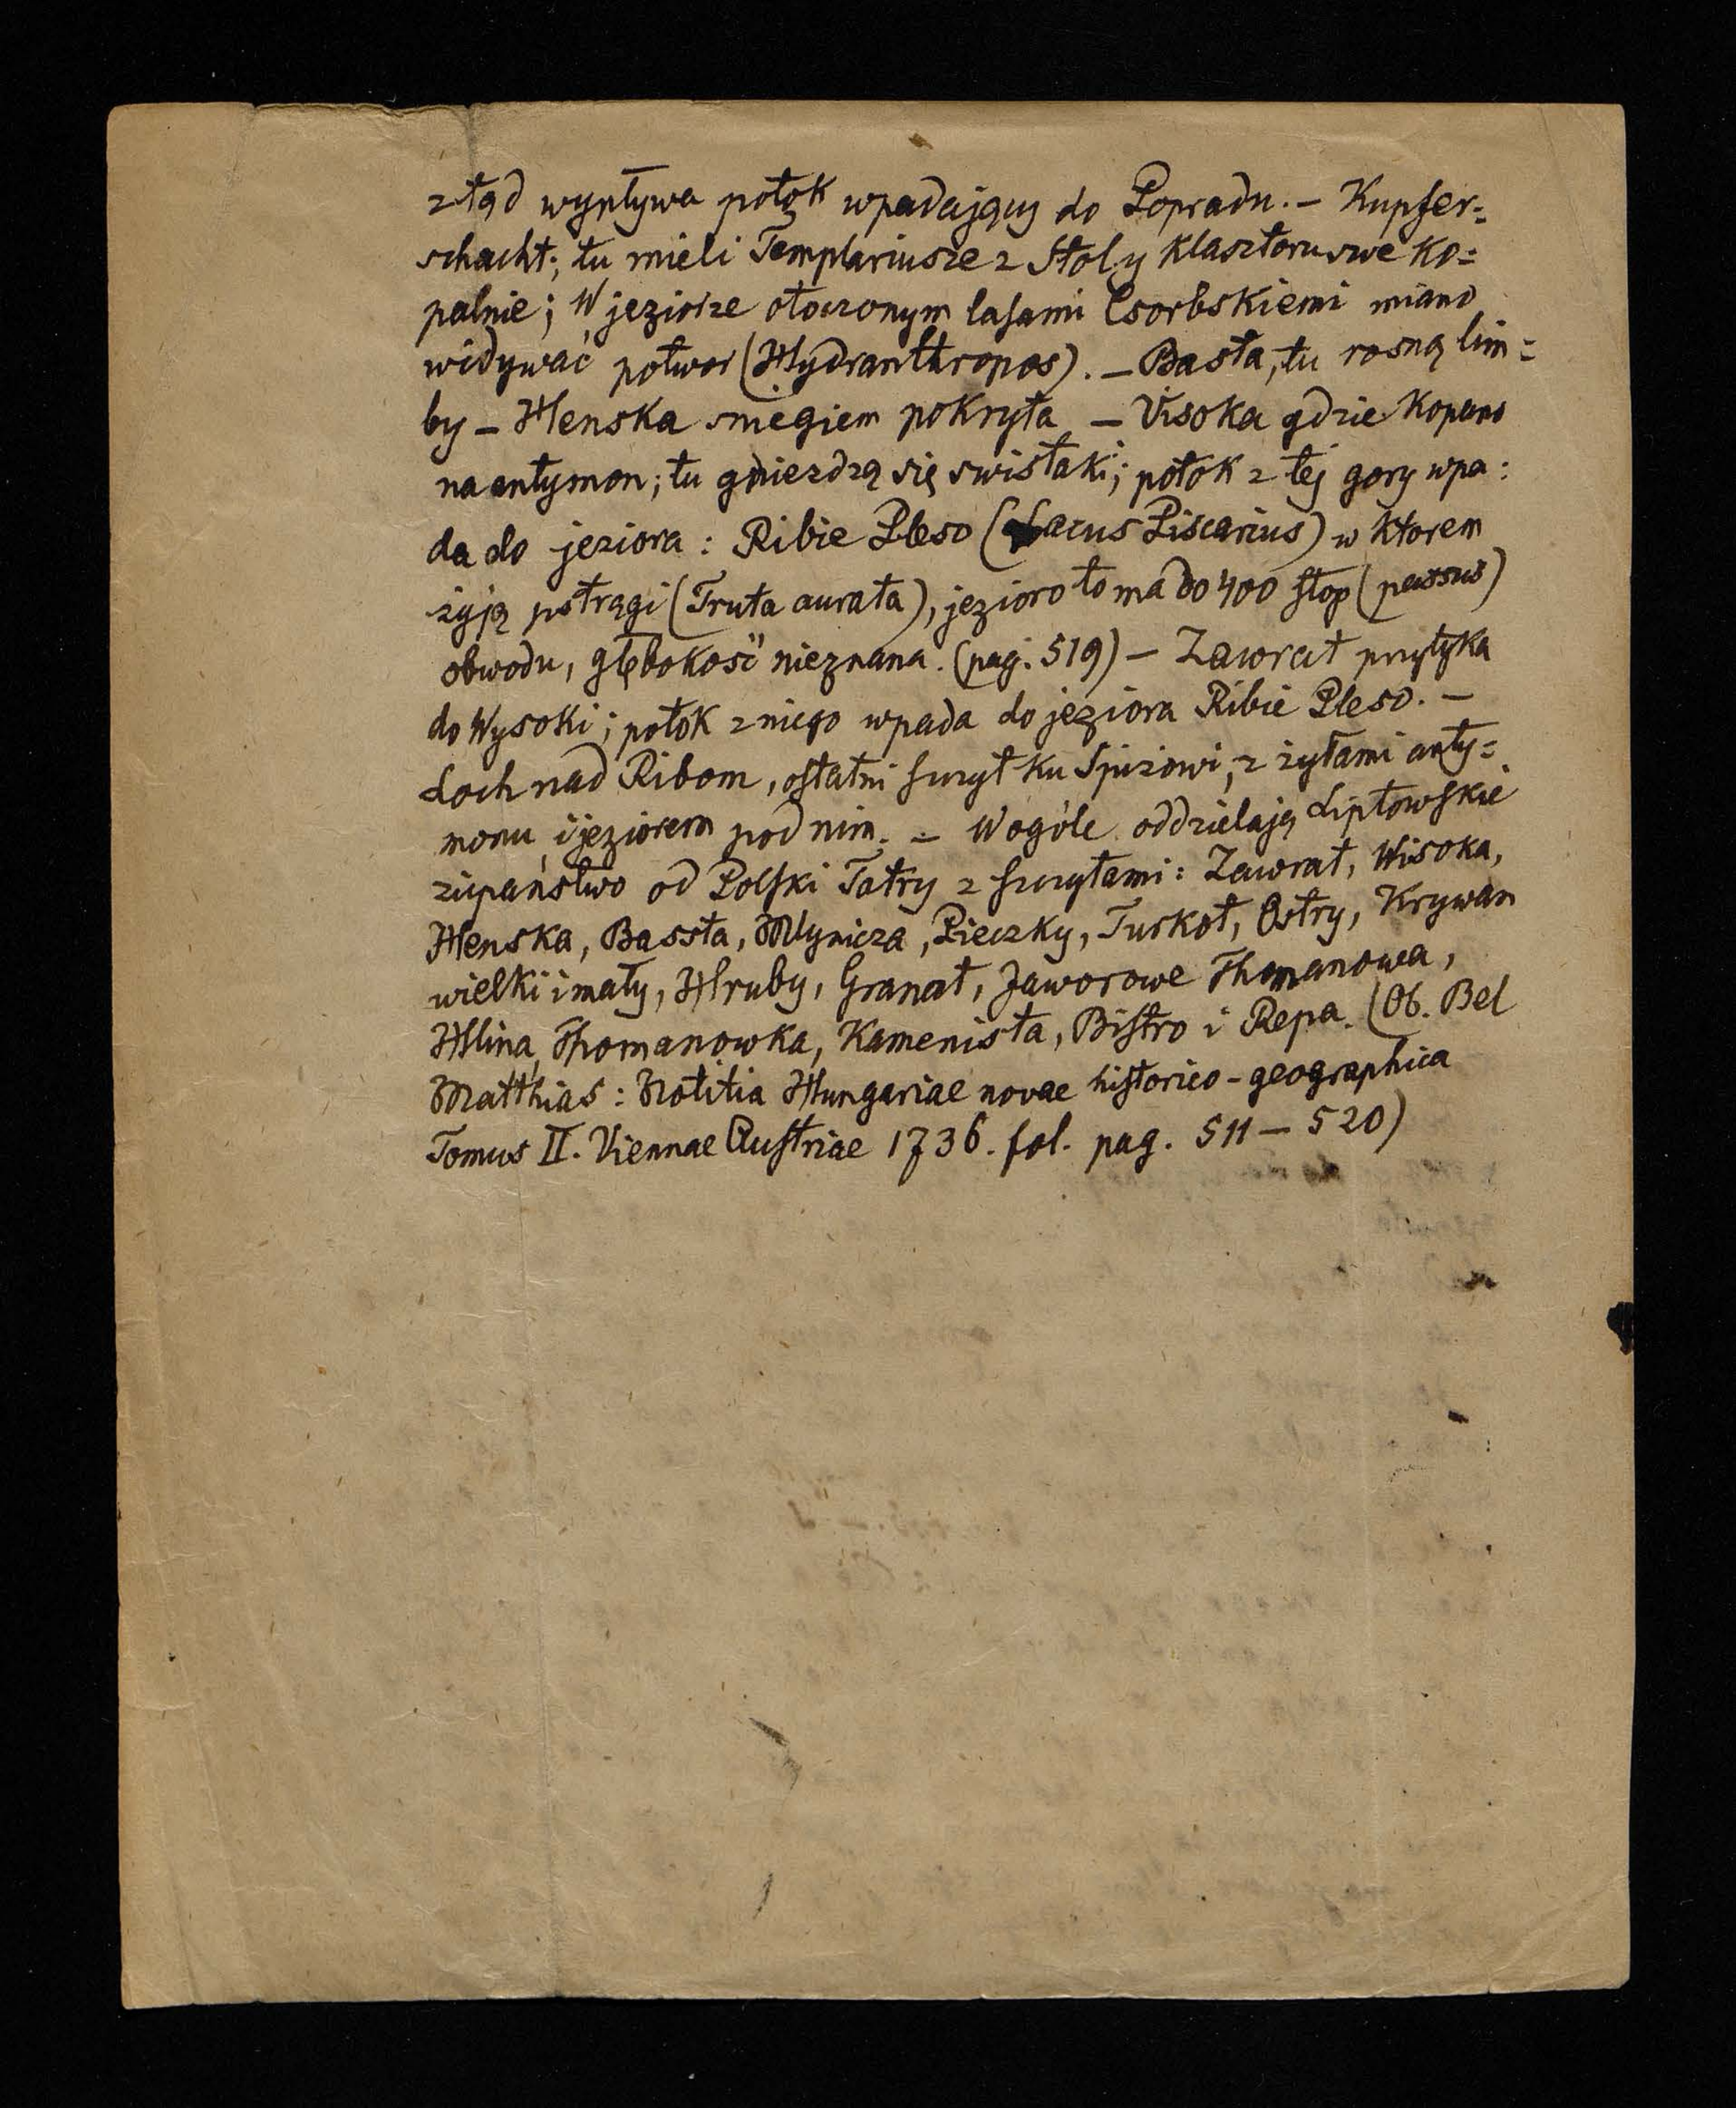 ztąd wypływa potok wpadający do Popradu. – Kupfer=
schacht; tu mieli Templariusze z Stoly klasztoru swe ko=
palnie; W jeziorze otoczonym lasami Csorbskiemi miano
widywać potwor (Hydranthropos). – Basta, tu rosną lim=
by – Henska sniegiem pokryta – Visoka gdzie kopano
na antymon; tu gniezdzą się swistaki; potok z tej gory wpa:
da do jeziora: Ribie Pleso (Lacus Piscarius) w ktorem
żyją pstrągi (Truta aurata), jezioro to ma do 400 stop (passus)
obwodu, głębokość nieznana. (pag. 519) – Zawrat przytyka
do Wysoki; potok z niego wpada do jeziora Ribie Pleso. –
Loch nad Ribom, ostatni szczyt ku Spiżowi, z żyłami anty=
monu i jeziorem pod nim. – Wogóle oddzielają Liptowskie
żupaństwo od Polski Tatry z szczytami: Zawrat, Wisoka,
Henska, Bassta, Mlynicza, Pieczky, Turkot, Ostry, Krywan
wielki i mały, Hruby, Granat, Jaworowe Thomanowa,
Hlina, Thomanowka, Kamenista, Bistro i Repa. (Ob. Bel
Matthias: Notitia Hungariae novae historico-geographica
Tomus II. Viennae Austriae 1736. fol. pag. 511 – 520)